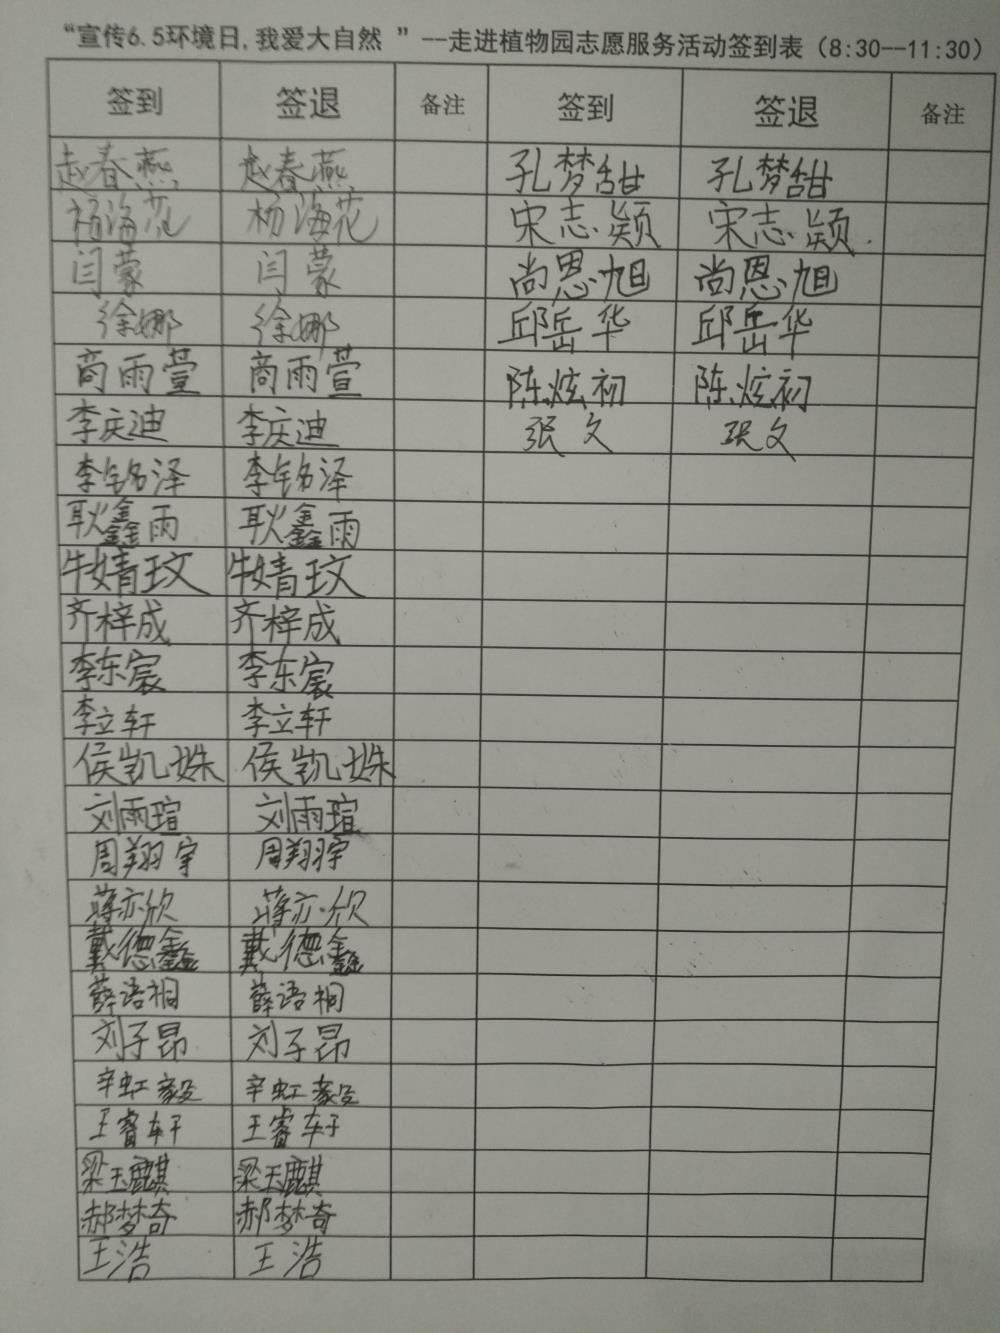 “宣传6.5环境日,我爱大自然 ”--走进植物园志愿服务活动签到表（8:30--11:30）
签到 签退 备注 签到 签退 备注
赵春燕 赵春燕 孔梦甜 孔梦甜
杨海花 杨海花 宋志颖 宋志颖
闫蒙 闫蒙 尚恩旭 尚恩旭
徐娜 徐娜 邱岳华 邱岳华
商雨萱 商雨萱 陈炫初 陈炫初
李庆迪 李庆迪 张文 张文
李铭泽 李铭泽
耿鑫雨 耿鑫雨
牛婧玟 牛婧玟
齐梓成 齐梓成
李东宸 李东宸
李立轩 李立轩
侯凯姝 侯凯姝
刘雨瑄 刘雨瑄
周翔宇 周翔宇
蒋亦欣 蒋亦欣
戴德鑫 戴德鑫
薛语桐 薛语桐
刘子昂 刘子昂
辛虹毅 辛虹毅
王睿轩 王睿轩
梁玉麒 梁玉麒
郝梦奇 郝梦奇
王浩 王浩